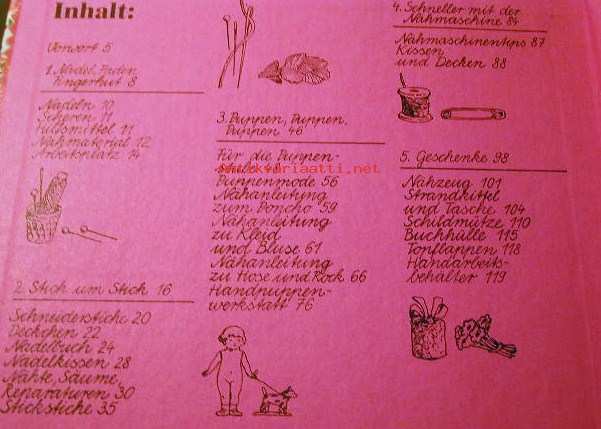 Inhalt:
Vorwort 5
1. Nadel, Faden,
Fingerhut 8
Nadeln 10
Scheren 11
Hilfsmittel 11
Nähmaterial 12
Arbeitsplatz 14
2. Stich um Stich 16
Schneiderstiche 20
Deckchen 22
Nadelbuch 24
Nadelkissen 28
Nähte, Säume,
Reparaturen 30
Stickstiche 35
3. Puppen, Puppen,
Puppen 46
Für die Puppen-
Puppenmode 56
Nähanleitung
zum Poncho 59
Nähanleitung
zu Kleid
und Bluse 61
Nähanleitung
zu Hose und Rock 66
Handpuppen-
werkstatt 76
4. Schneller mit der
Nähmaschine 84
Nähmaschinentips 87
Kissen
und Decken 88
5. Geschenke 98
Nähzeug 101
Strandkittel
und Tasche 104
Schildmütze 110
Buchhülle 115
Topflappen 118
Handarbeits-
behälter 119